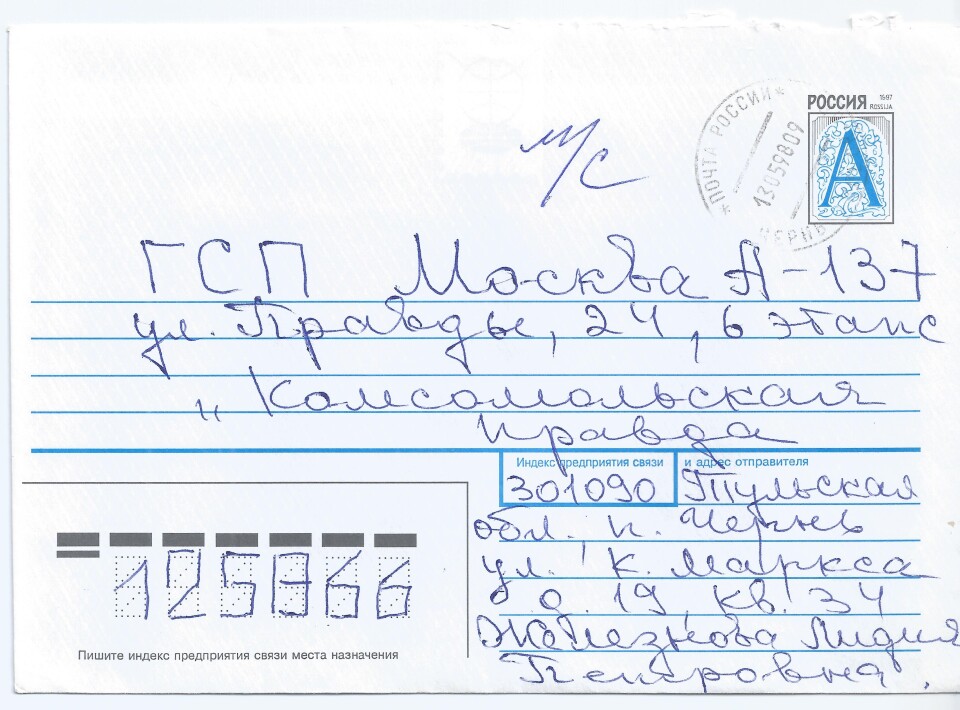 РОССИЯ 1997
ROSSIJA
А
ПОЧТА РОССИИ
13059809
м/с
ГСП Москва А-137
ул. Правды, 24, 6 этаж
"Комсомольская
правда
Индекс предприятия связи и адрес отправителя
301090 Тульская
обл., п. Чернь
ул. К. Маркса
д. 19, кв. 34
Железнова Лидия
Петровна.
125866
Пишите индекс предприятия связи места назначения